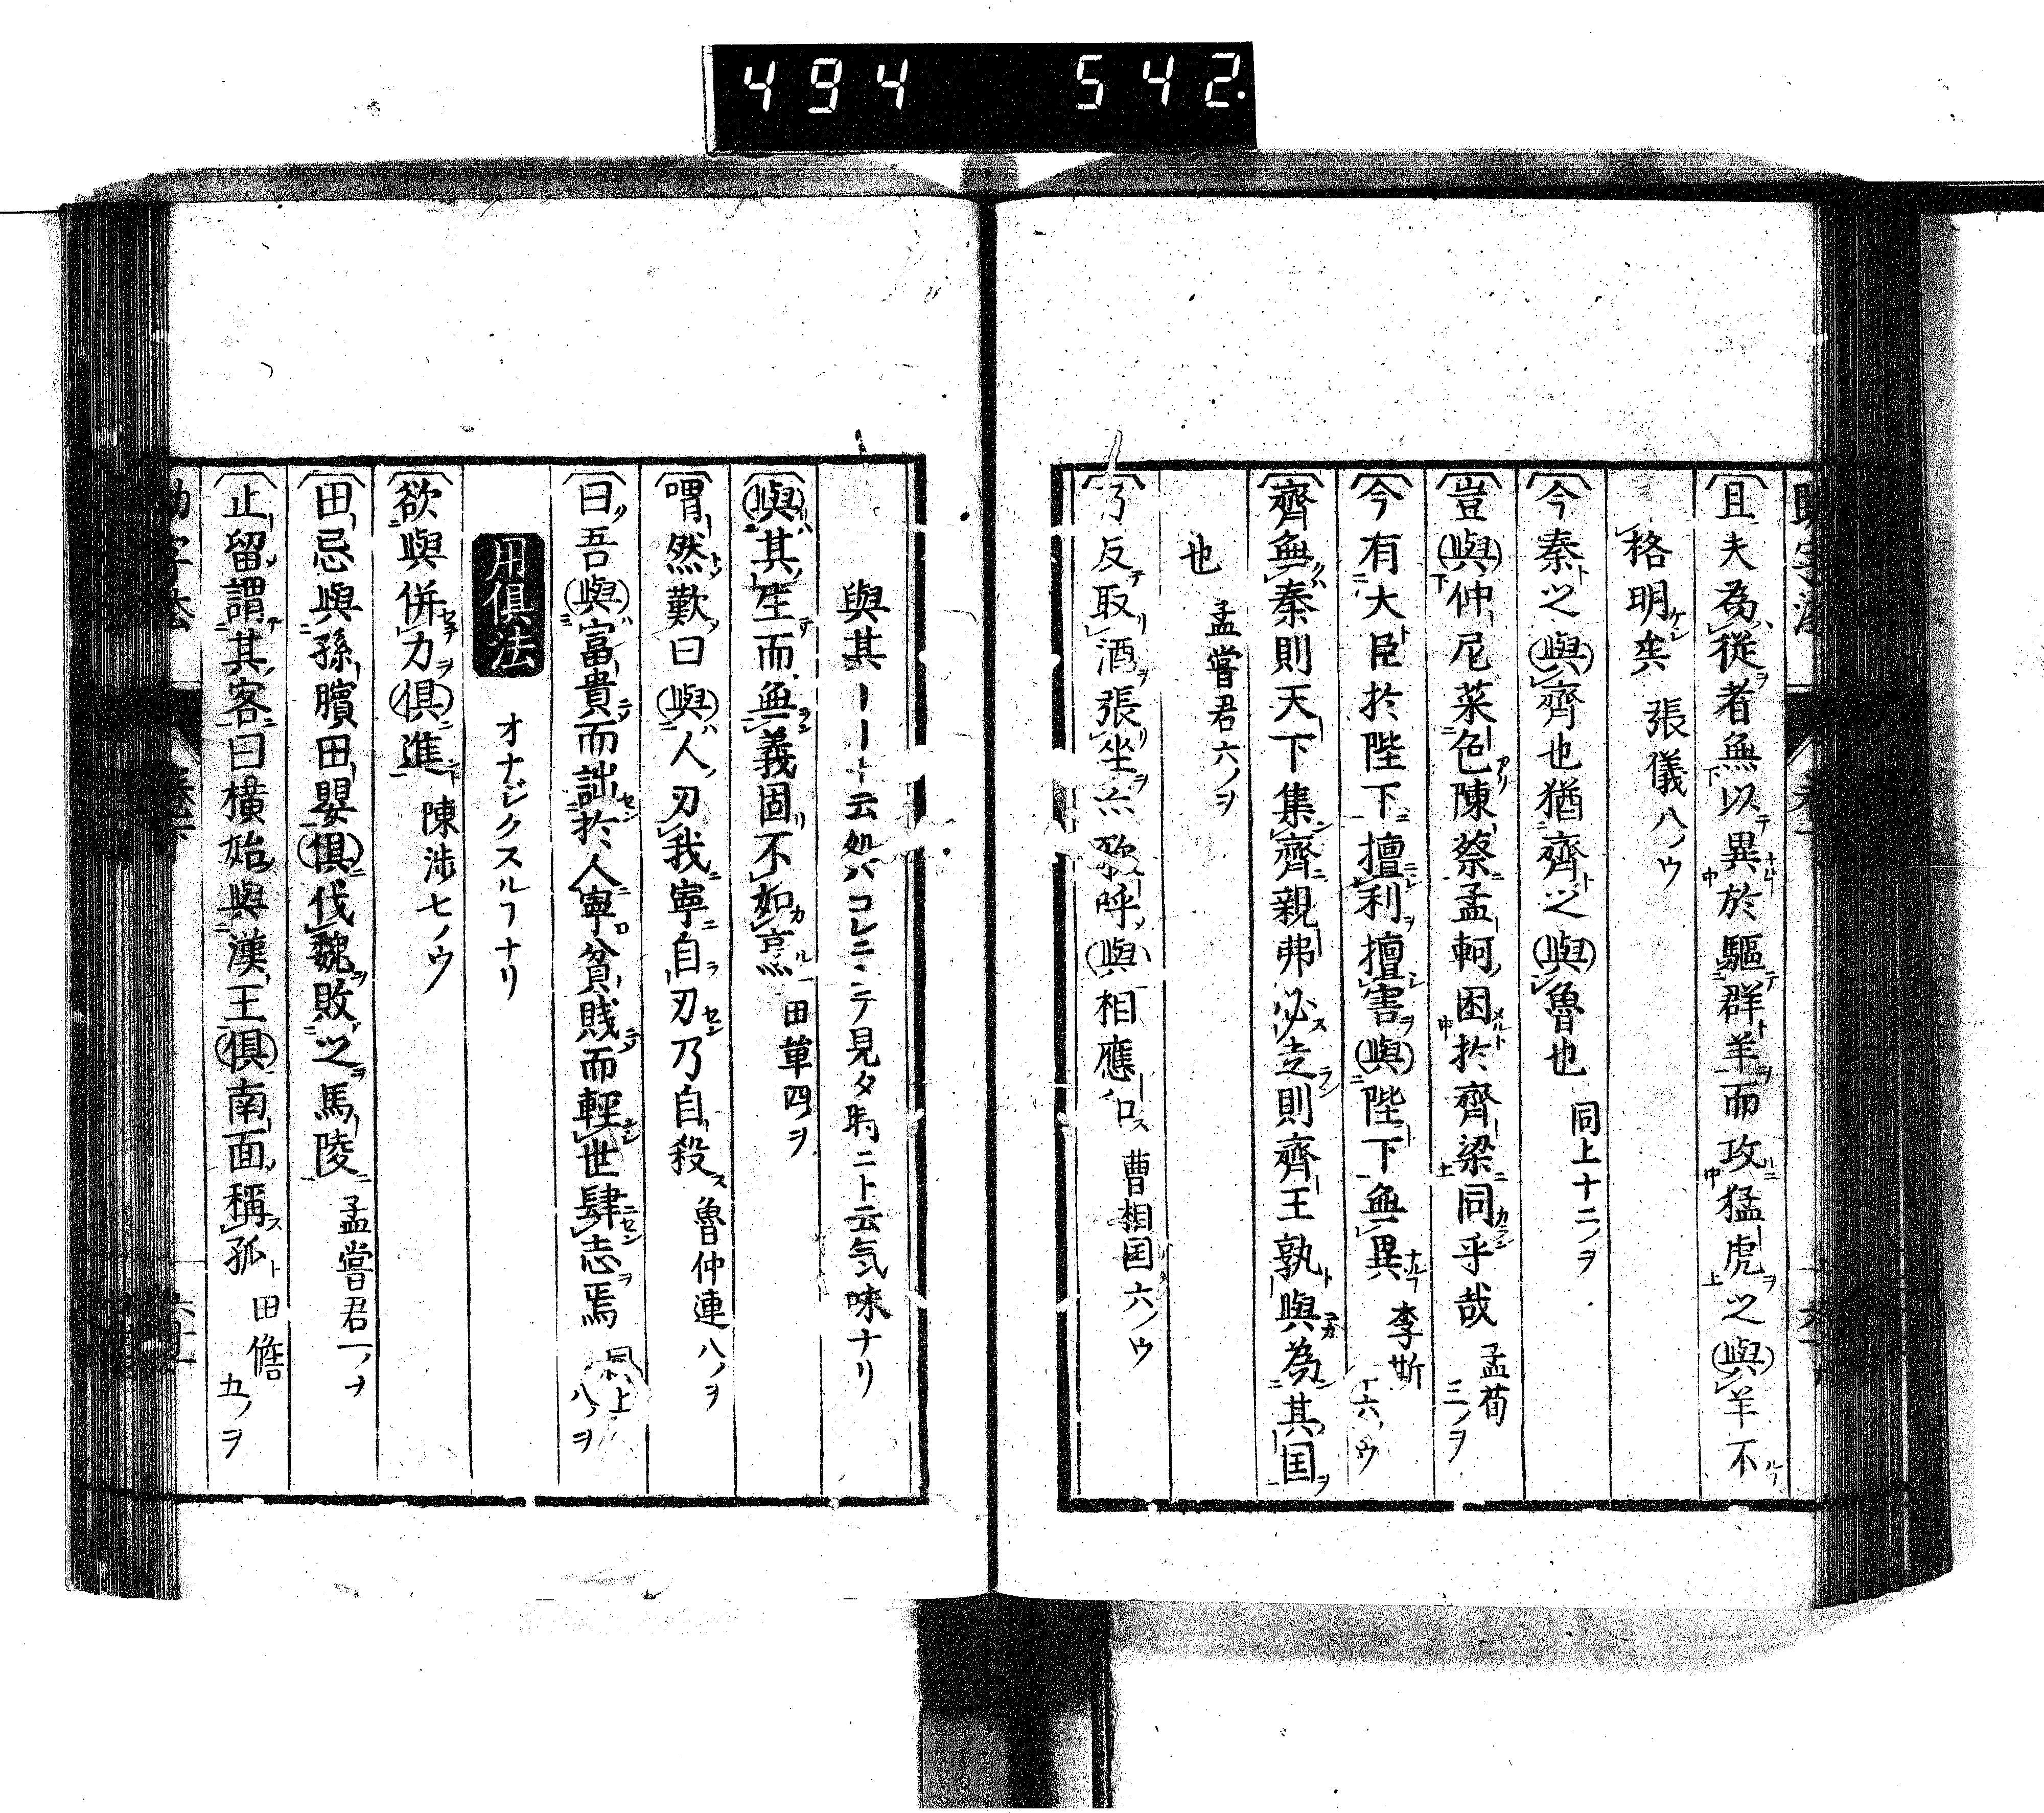 494 542.
且夫為從者無以異於驅群羊而攻猛虎之與羊不
格明矣 張儀八ノウ
今秦之與齊也猶齊之與魯也 同上十二ノヲ
豈與仲尼菜色陳蔡孟軻困於齊梁同乎哉 孟荀三ノヲ
今有大臣於陛下擅利擅害與陛下無異 李斯十六ノウ
齊無秦則天下集齊親弗必走則齊王孰與為其国
也 孟嘗君六ノヲ
乃反取酒張坐亦歌呼與相應 曹相国六ノウ
與其ーーート云処ハコレニ
テ見タ時ニト云気味ナリ
與其生而無義固不如烹 田単四ノヲ
喟然歎曰與人刃我寧自刃乃自殺 魯仲連八ノヲ
曰吾與富貴而詘於人寧貧賤而輕世肆志焉 同上八ノヲ
用俱法 オナジクスルヿナリ
欲與併力俱進 陳涉七ノウ
田忌與孫臏田嬰俱伐魏敗之馬陵 孟嘗君一ノ
止留謂其客曰橫始與漢王俱南面稱孤 田儋五ノヲ